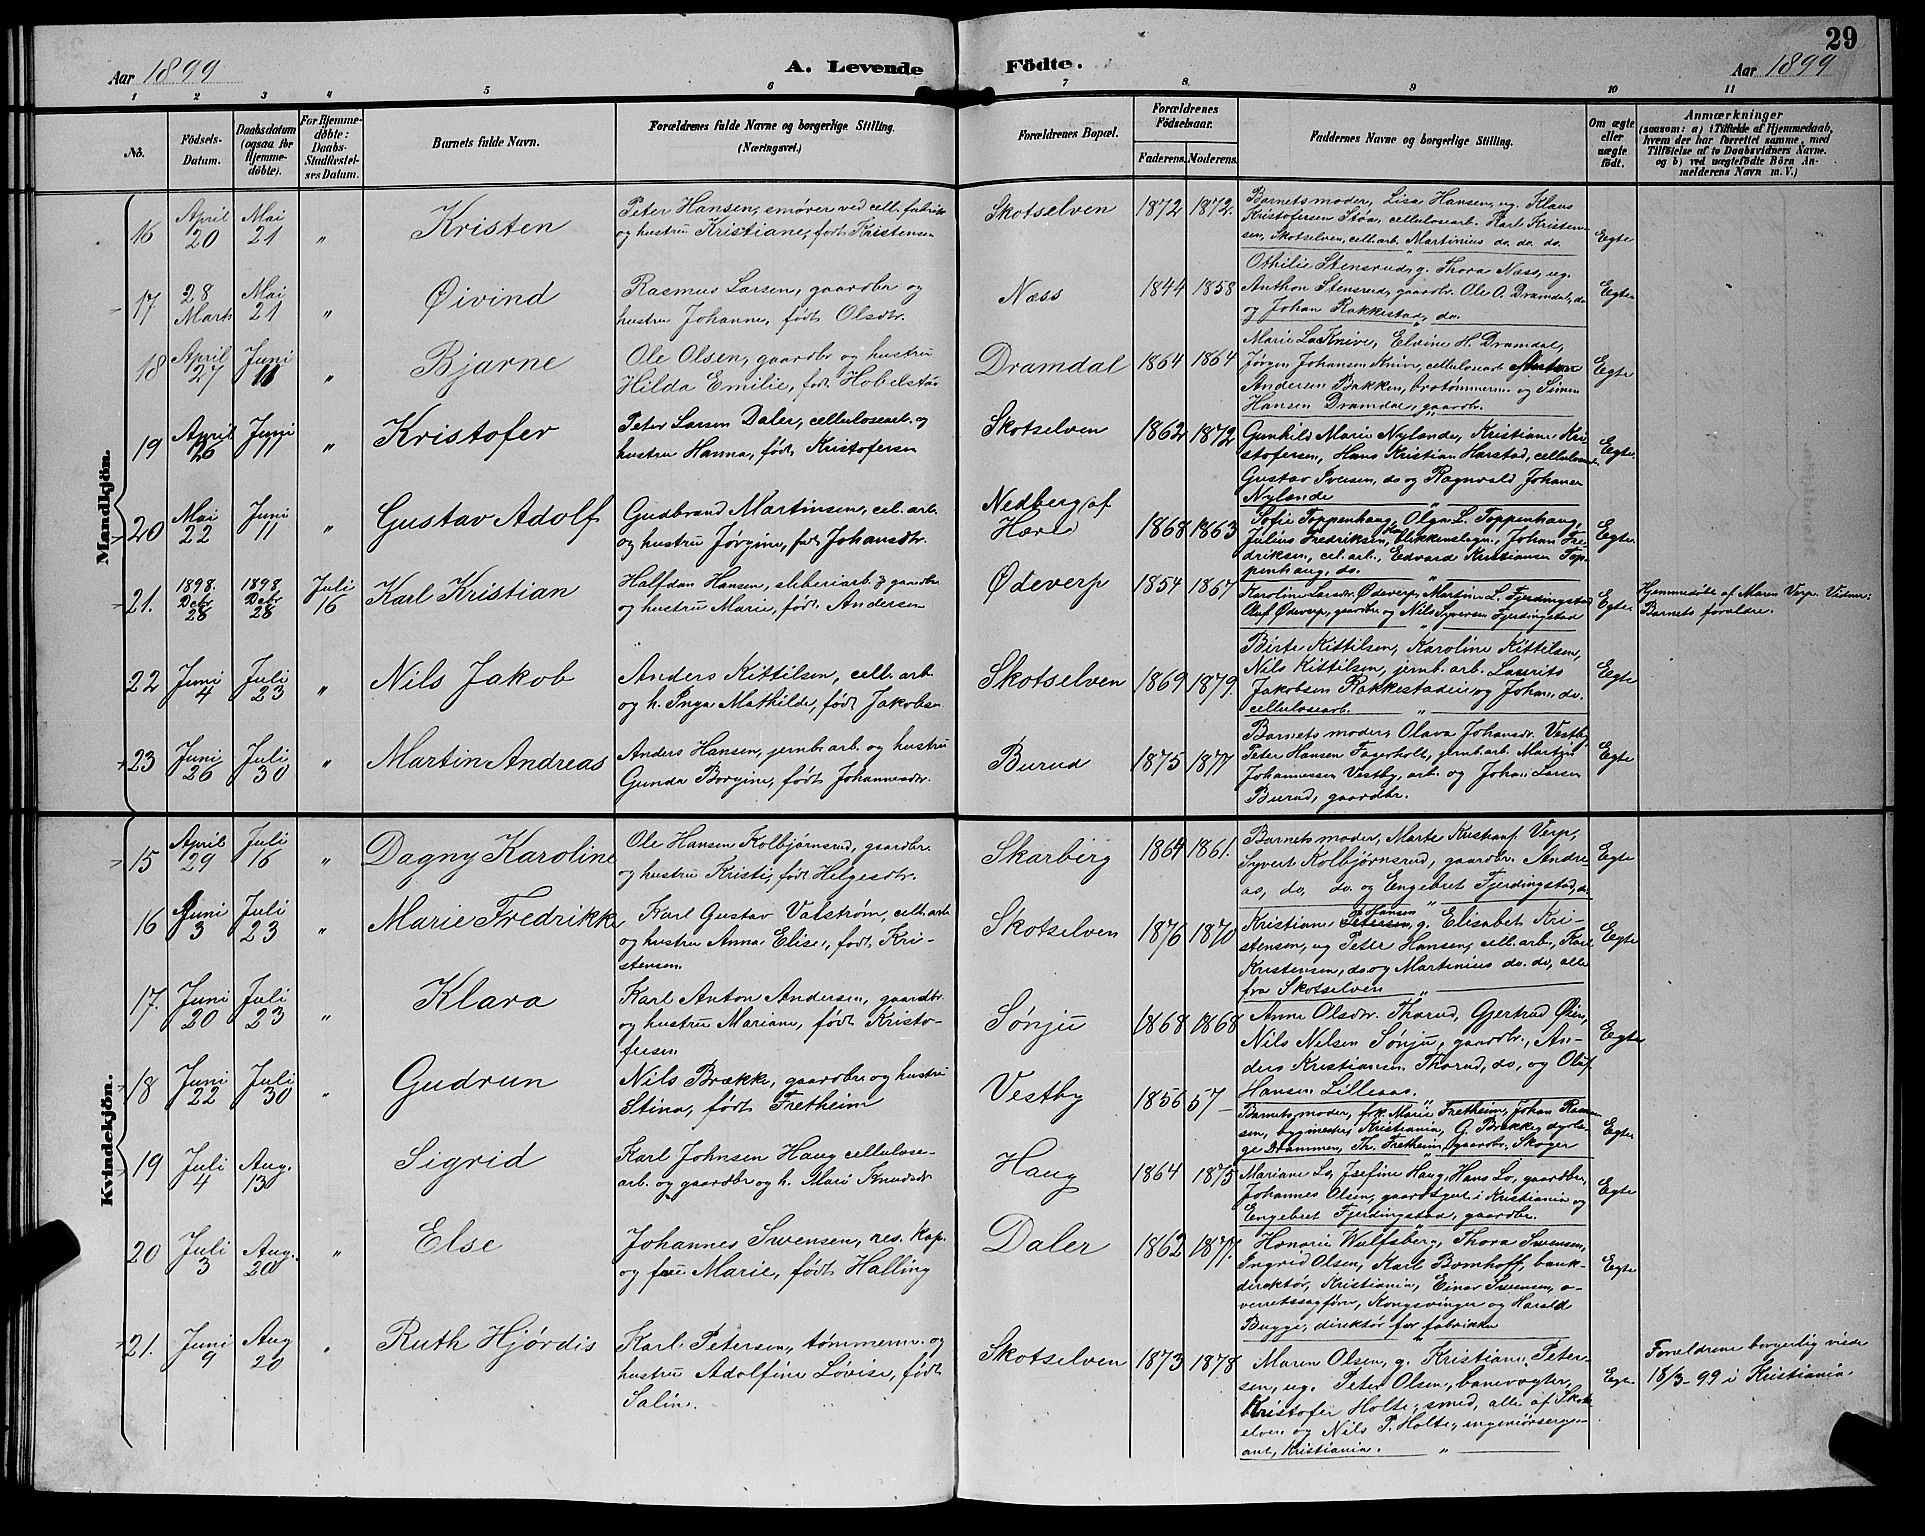 29
Aar 1899
A. Levende Födte.
Aar 1899
1 2 3 4 5 6 7 8 9 10 11
No.
Födsels-Datum.
Daabsdatum (ogsaa for Hjemme-döbte).
For Hjemme-döbte: Daabs-Stadfæstel-ses Datum.
Barnets fulde Navn.
Forældrenes fulde Navne og borgerlige Stilling.
(Næringsvei.)
Forældrenes Bopæl.
Forældrenes Födselsaar.
Faderens. Moderens.
Faddernes Navne og borgerlige Stilling.
Om ægte eller uægte födt.
Anmærkninger
(saasom: a) i Tilfælde af Hjemmedaab,
hvem der har forrettet samme, med
Tilföielse af to Daabsvidners Navne.
og b) ved uægtefödte Börn An-
melderens Navn m. V.)
Mandkjön.
16 April 20 Mai 21 " Kristen
Peter Hansen, smører ved cell. fabrik
og hustru Kristiane, født Kristensen
Skotselven 1872 1872.
Barnets moder, Lisa Hansen, ug. Klaus
Kristofersen Støa, cellulosearb. Karl Kristen-
sen, Skotselven, cell. arb. Martinius do. do. do.
Egte
17 28 Mars Mai 21 " Øivind
Rasmus Larsen, gaardbr og
hustru Johanne, født Olsdtr.
Næss 1844 1858
Othilie Stensrud, g. Thora Næss, ug.
Anthon Stensrud, gaardbr. Ole O. Dramdal, do
og Johan Rakkestad, do.
Egte
18 April 27 Juni 11 " Bjarne
Ole Olsen, gaardbr og hustru
Hilda Emilie, født Hobelstad
Dramdal 1864 1864
Marie L. Knive, Elvine H. Dramdal,
Jørgen Johansen Knive, cellulosearb
Andersen Bakken, brotømmerm. og Simen
Hansen Dramdal, gaardbr.
Egte
19 April 26 Juni 11 " Kristofer
Peter Larsen Daler, cellulosearb. og
hustru Hanna, født Kristofersen
Skotselven 1862 1872
Gunhild Marie Nylænde, Kristiane Kri-
stofersen, Hans Kristian Harstad, cellulosearb
Gustav Iversen, do og Ragnvald Johansen
Nylænde
Egte.
20 Mai 22 Juni 11 " Gustav Adolf
Gudbrand Martinsen, cel. arb.
og hustru Jørgine, født Johansdtr.
Nedberg af
Hære 1868 1863
Sofie Toppenhaug, Olga L. Toppenhaug,
Julius Fredriksen, blikkenslagr., Johan Fre-
driksen, cel. arb., Edvard Kristiansen Top-
penhaug, do.
Egte.
21. 1898. Debr 28 1898 Debr 28 Juli 16 Karl Kristian
Halfdan Hansen, sliberiarb. & gaardbr
og hustru Marie, født Andersen
Ødeverp 1854 1867
Karoline Larsdtr. Ødeverp, Martin L. Fjerdingstad
Oluf Ødeverp, gaardbr og Nils Syversen Fjerdingstad
Egte
Hjemmedøbt af Maren Verp. Vidner:
Barnets forældre.
22 Juni 4 Juli 23 " Nils Jakob
Anders Kittilsen, cell. arb.
og h. Inga Mathilde, født Jakobsen
Skotselven 1869 1879.
Birte Kittilsen, Karoline Kittilsen,
Nils Kittilsen, jernb. arb. Laurits
Jakobsen Rakkestadeie og Johan do.
cellulosearb.
Egte
23 Juni 26 Juli 30 " Martin Andreas
Anders Hansen, jernb. arb. og hustru
Gunda Borgine, født Johannesdtr.
Burud 1875 1877
Barnets moder, Olava Johansdr. Vestby
Peter Hansen Fagerholt, jernb. arb. Martin
Johannessen Vestby, arb. og Johan Larsen
Burud, gaardbr.
Egte
Kvindekjön.
15 April 29 Juli 16 " Dagny Karoline
Ole Hansen Kolbjørnsrud, gaardbr.
og hustru Kristi, født Helgesdtr.
Skarberg 1864 1861.
Barnets moder, Marte Kristianf. Verp,
Syvert Kolbjørnsrud, gaardbr. Andre-
as, do, do. og Engebret Fjerdingstad, do
Egte
16 Juni 3 Juli 23 " Marie Fredrikke
Karl Gustav Valstrøm, cell. arb.
og hustru Anna Elise, født Kri-
stensen.
Skotselven 1876 1870
Hansen
Kristiane Petersen, g. Elisabet Kri-
stensen, ug Peter Hansen, cell. arb., Karl
Kristensen, do og Martinius do. do, alle
fra Skotselven
Egte
17. Juni 20 Juli 23 " Klara
Karl Anton Andersen, gaardbr.
og hustru Mariane, født Kristo-
fersen
Sønju 1868 1868
Anne Olsdtr. Thorud, Gjertrud Øien,
Nils Nelsen Sønju, gaardbr., An-
ders Kristiansen Thorud, do, og Oluf
Hansen Lilleaas.
Egte
18 Juni 22 Juli 30 " Gudrun
Nils Brække, gaardbr og hustru
Stina, født Fretheim
Vestby 1856 57
Barnets moder, frk. Marie Fretheim, Johan Rasmus-
sen, bygmester, Kristiania, G. Brække dyrlæ-
ge Drammen, Th. Fretheim, gaardbr. Skoger
Egte
19 Juli 4 Aug. 13 " Sigrid
Karl Johnsen Haug cellulose-
arb. og gaardbr og h. Mari Knudsdtr
Haug 1864 1875
Mariane Lo, Josefine Haug, Hans Lo, gaardbr,
Johannes Olsen, gaardsgut i Kristiania og
Engebret Fjerdingstad, gaardbr.
Egte
20 Juli 3 Aug. 20 " Else
Johannes Swensen, res. kap.
og fru Marie, født Halling
Daler 1862 1877.
Honorie Wulfsberg, Thora Swensen,
Ingrid Olsen, Karl Bomhoff, bank-
direktør, Kristiania, Einar Swensen, o-
verretssagfører, Kongsvinger og Harald
Bugge, direktør for fabrikken
Egte
21. Juni 9 Aug 20 " Ruth Hjørdis
Karl Petersen, tømmerm. og
hustru Adolfine Lovise, født
Saline.
Skotselven 1873 1878
Maren Olsen, g. Kristiane Peter-
sen, ug. Peter Olsen, banevogter,
Kristofer Holte, smed, alle af Skots-
elven og Nils P. Holte, ingeniørserge-
ant, Kristiania.
Egte
Forældrene borgerlig viede
18/3-99 i Kristiania.